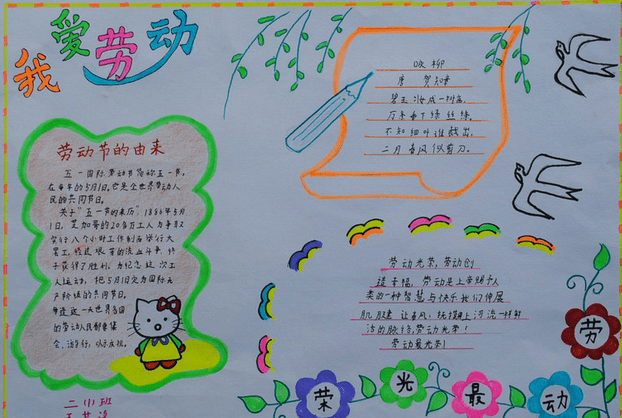 我爱劳动
劳动节的由来
五一国际劳动节简称五一节,
在每年的5月1日,它是全世界劳动人
民的共同节日。
关于"五一节的来历"1886年5月
1日,芝加哥的20多万工人为争取
实行八个小时工作制而举行大
罢工,经过艰苦的流血斗争,终
于获得了胜利。为纪念这次工
人运动,把5月1定为国际无
产阶级的共同节日。
每逢这一天世界各国
的劳动人民都要集
会、游行,以示庆祝。
二(1)班
咏柳
唐 贺知章
碧玉妆成一树高,
万条垂下绿丝绦,
不知细叶谁裁出,
二月春风似剪刀。
劳动光荣,劳动创
造幸福,劳动是上帝赐予人
类的一种智慧与快乐我们伸展
肌肤,让春风,抚摸上河流一样鲜
活的脉络,劳动光荣!
劳动最光荣!
劳
动
最
光
荣